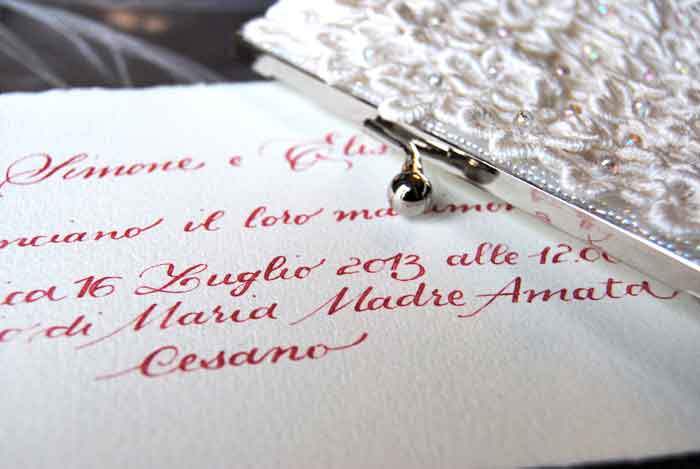 Simone e Elis
nciano il loro matrimon
ica 16 Luglio 2013 alle 12.00
o di Maria Madre Amata
Cesano